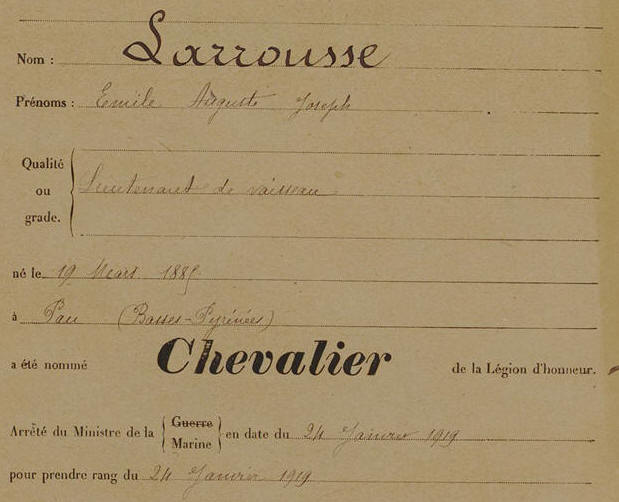 Nom : Larrousse
Prénoms : Emile Auguste Joseph
Qualité ou grade. Lieutenant de vaisseau
né le 19 Mars 1885
à Pau (Basses-Pyrénées)
a été nommé Chevalier de la Légion d'honneur.
Arrêté du Ministre de la Guerre Marine en date du 24 Janvier 1919
pour prendre rang du 24 Janvier 1919